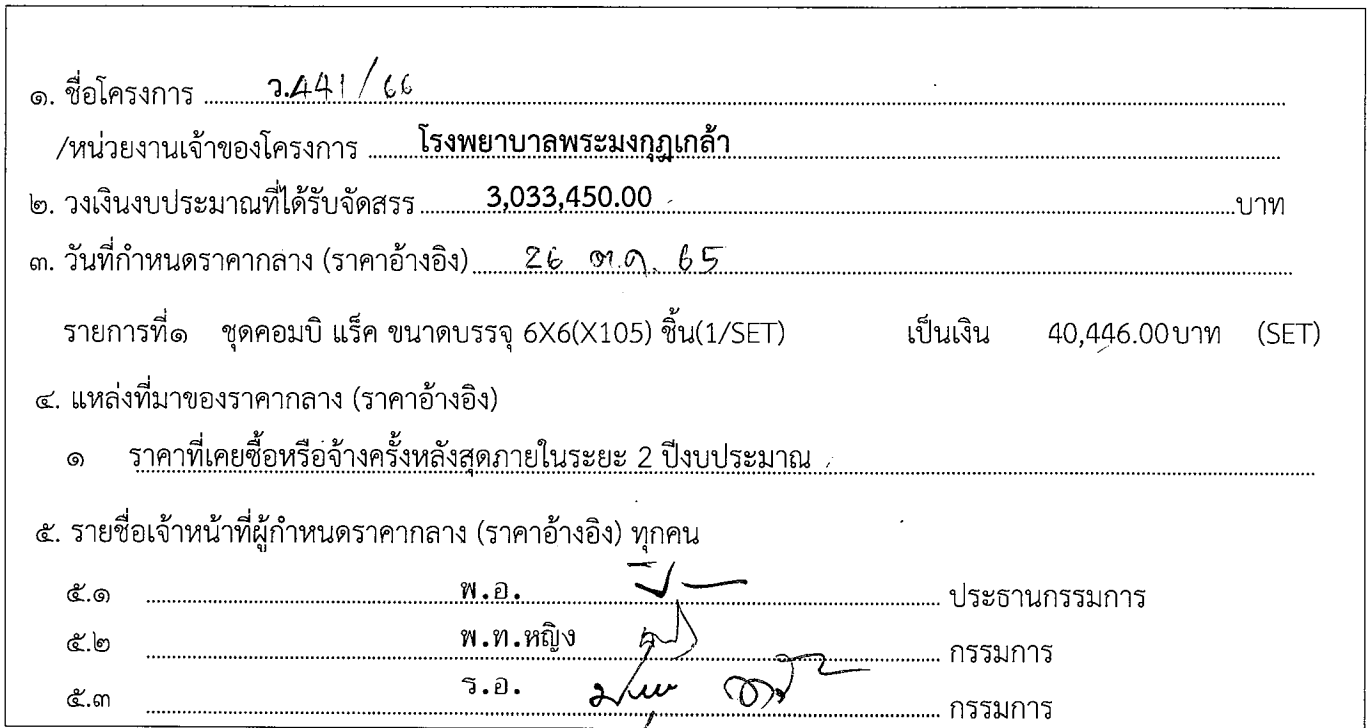 ๑. ชื่อโครงการ ว.441/66
/หน่วยงานเจ้าของโครงการ โรงพยาบาลพระมงกุฎเกล้า
๒. วงเงินงบประมาณที่ได้รับจัดสรร 3,033,450.00 บาท
๓. วันที่กำหนดราคากลาง (ราคาอ้างอิง) 26 ต.ค. 65
รายการที่๑ ชุดคอมบิ แร็ค ขนาดบรรจุ 6X6(X105) ชิ้น(1/SET) เป็นเงิน 40,446.00บาท (SET)
๔. แหล่งที่มาของราคากลาง (ราคาอ้างอิง)
๑ ราคาที่เคยซื้อหรือจ้างครั้งหลังสุดภายในระยะ 2 ปีงบประมาณ
๕. รายชื่อเจ้าหน้าที่ผู้กำหนดราคากลาง (ราคาอ้างอิง) ทุกคน
๕.๑ พ.อ. ประธานกรรมการ
๕.๒ พ.ท.หญิง กรรมการ
๕.๓ ร.อ. กรรมการ